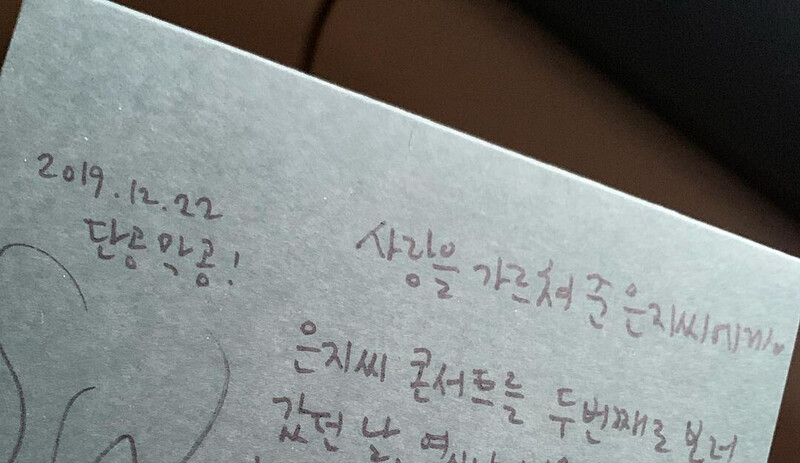 2019.12.22
단콘막콩!
사랑을 가르쳐 준 은지씨에게..
은지씨 콘서트를 두번째로 보러
갔던 날, 역시나